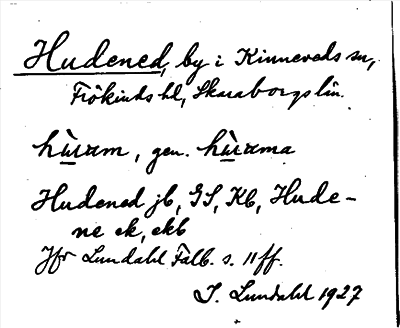 Hudened, by i Kinneveds sn,
Frökinds hd, Skaraborgs län.
hùram, gen. hùrama
Hudened jb, GS, Kb, Hude-
ne ek, ekb
Jfr Lundahl Falb. s. 11 ff.
I. Lundahl 1927